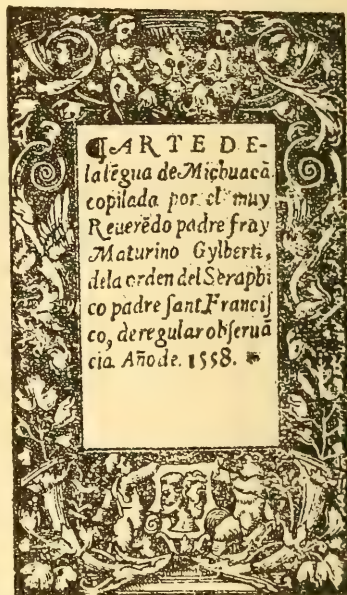 ¶ARTE DE-
la lēgua de Michuacā
copilada por el muy
Reuerēdo padre fray
Maturino Gylberti,
dela orden del Seraphi
co padre sant Francis
co, de regular obseruā
cia. Año de. 1558.